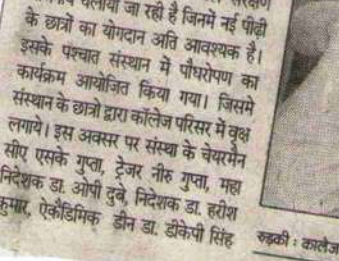 चलायी जा रही है जिनमें नई पीढ़ी
के छात्रों का योगदान अति आवश्यक है।
इसके पश्चात संस्थान में पौधरोपण का
कार्यक्रम आयोजित किया गया। जिसमे
संस्थान के छात्रों द्वारा कॉलेज परिसर में वृक्ष
लगाये। इस अवसर पर संस्था के चेयरमैन
सीए एसके गुप्ता, ट्रेजर नीरु गुप्ता, महा
निदेशक डा. ओपी दुबे, निदेशक डा. हरीश
कुमार, ऐकेडिमिक डीन डा. डीकेपी सिंह
रुड़की : कालेज